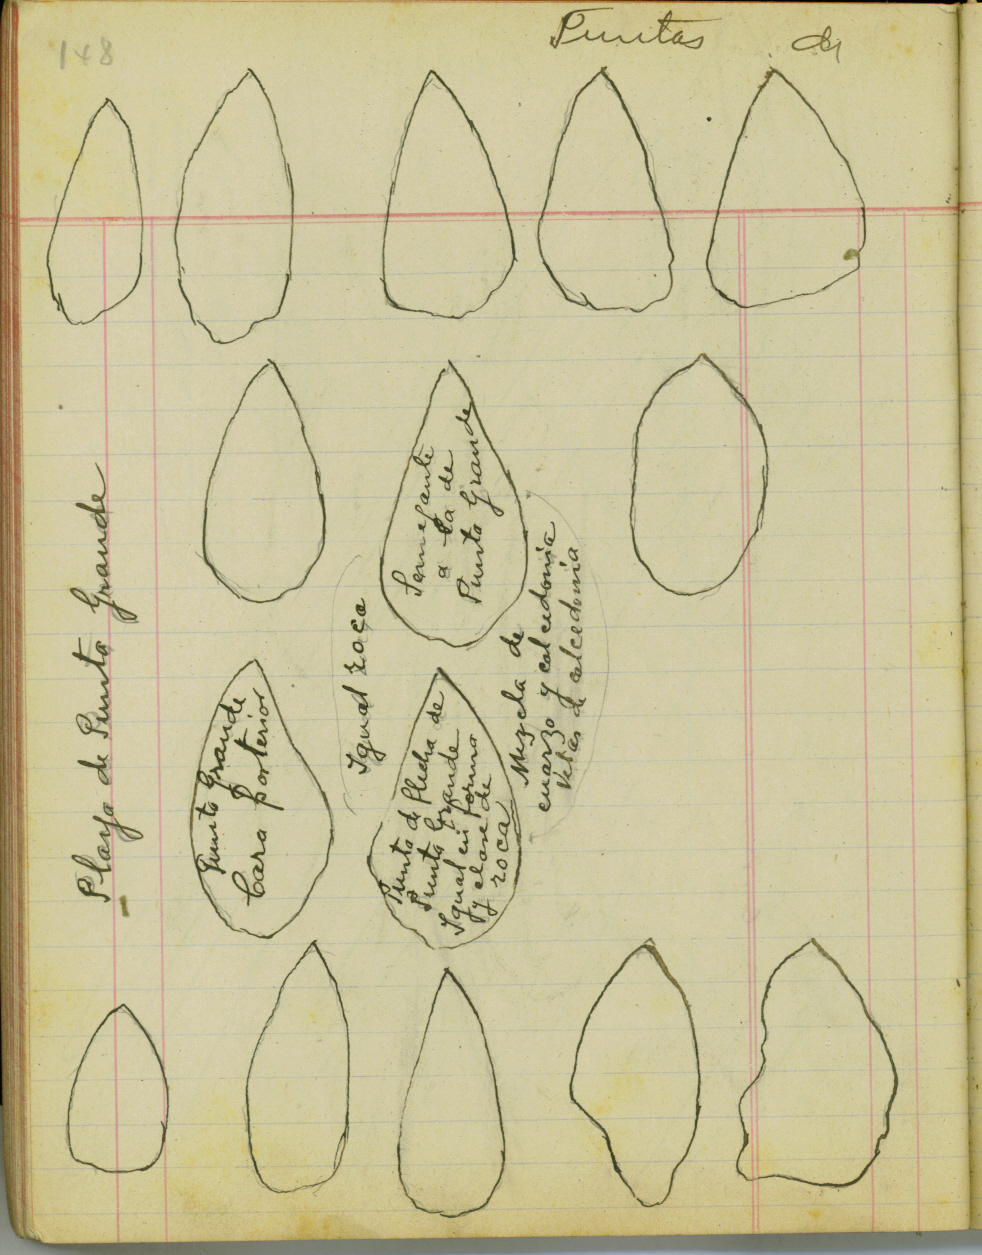 148
Puntas de
Playa de Punta Grande
Punta Grande
Cara porterior
Igual roca
Semegante
a la de
Punta Grande
Punta de Flecha de
Punta Grande
Igual en forma
y clase de
roca
Mezcla de
cuarzo y calcedonia
Vetas de calcedonia